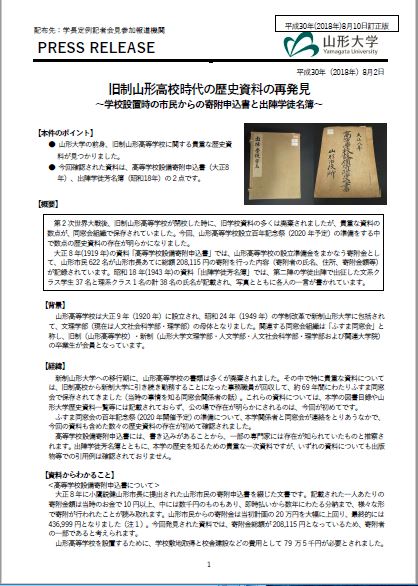 配布先：学長定例記者会見参加報道機関
平成30年(2018年)8月10日訂正版
PRESS RELEASE
山形大学
Yamagata University
平成30年（2018年）8月2日
旧制山形高校時代の歴史資料の再発見
～学校設置時の市民からの寄附申込書と出陣学徒名簿～
【本件のポイント】
● 山形大学の前身、旧制山形高等学校に関する貴重な歴史資
料が見つかりました。
● 今回確認された資料は、高等学校設備寄附申込書（大正8
年）、出陣学徒芳名簿（昭和18年）の２点です。
【概要】
第２次世界大戦後、旧制山形高等学校が閉校した時に、旧学校資料の多くは廃棄されましたが、貴重な資料の
数点が、同窓会組織で保存されていました。今回、山形高等学校設立百年記念祭（2020年予定）の準備をする中
で数点の歴史資料の存在が明らかになりました。
大正８年(1919年)の資料「高等学校設備寄附申込書」では、山形高等学校の設立準備金をまかなう寄附金とし
て、山形市民622名が山形市長あてに総額208,115円の寄附を行った内容（寄附者の氏名、住所、寄附金額等）
が記録されています。昭和18年(1943年)の資料「出陣学徒芳名簿」では、第二陣の学徒出陣で出征した文系ク
ラス学生37名と理系クラス１名の計38名の氏名が記載され、写真とともに各人の一言が書かれています。
【背景】
山形高等学校は大正９年（1920年）に設立され、昭和24年（1949年）の学制改革で新制山形大学に包括され
て、文理学部（現在は人文社会科学部・理学部）の母体となりました。関連する同窓会組織は「ふすま同窓会」と
称し、旧制（山形高等学校）・新制（山形大学文理学部・人文学部・人文社会科学部・理学部および関連大学院）
の卒業生が会員となっています。
【経緯】
新制山形大学への移行期に、山形高等学校の書類は多くが廃棄されました。その中で特に貴重な資料について
は、旧制高校から新制大学に引き続き勤務することになった事務職員が回収して、約69年間にわたりふすま同窓
会で保存されてきました（当時の事情を知る同窓会関係者の話）。これらの資料については、本学の図書目録や山
形大学歴史資料一覧等には記載されておらず、公の場で存在が明らかにされるのは、今回が初めてです。
ふすま同窓会の百年記念祭（2020年開催予定）の準備について、本学関係者と同窓会が連絡をとりあうなかで、
今回の資料も含めた数々の歴史資料の存在が初めて確認されました。
高等学校設備寄附申込書には、書き込みがあることから、一部の専門家には存在が知られていたものと推察さ
れます。出陣学徒芳名簿とともに、本学の歴史を知るための貴重な一次資料ですが、いずれの資料についても出版
物等での引用例は確認されておりません。
【資料からわかること】
＜高等学校設備寄附申込書について＞
大正８年に小鷹鋭健山形市長に提出された山形市民の寄附申込書を綴じた文書です。記載された一人あたりの
寄附金額は当時のお金で10円以上、中には数千円のものもあり、即時払いから数年にわたる分納まで、様々な形
で寄附が行われたことが読み取れます。山形市民からの寄附金は当初計画の20万円を大幅に上回り、最終的には
436,999円となりました（注１）。今回発見された資料では、寄附金総額が208,115円となっているため、寄附者
の一部であると考えられます。
山形高等学校を設置するために、学校敷地取得と校舎建設などの費用として79万５千円が必要とされました。
1